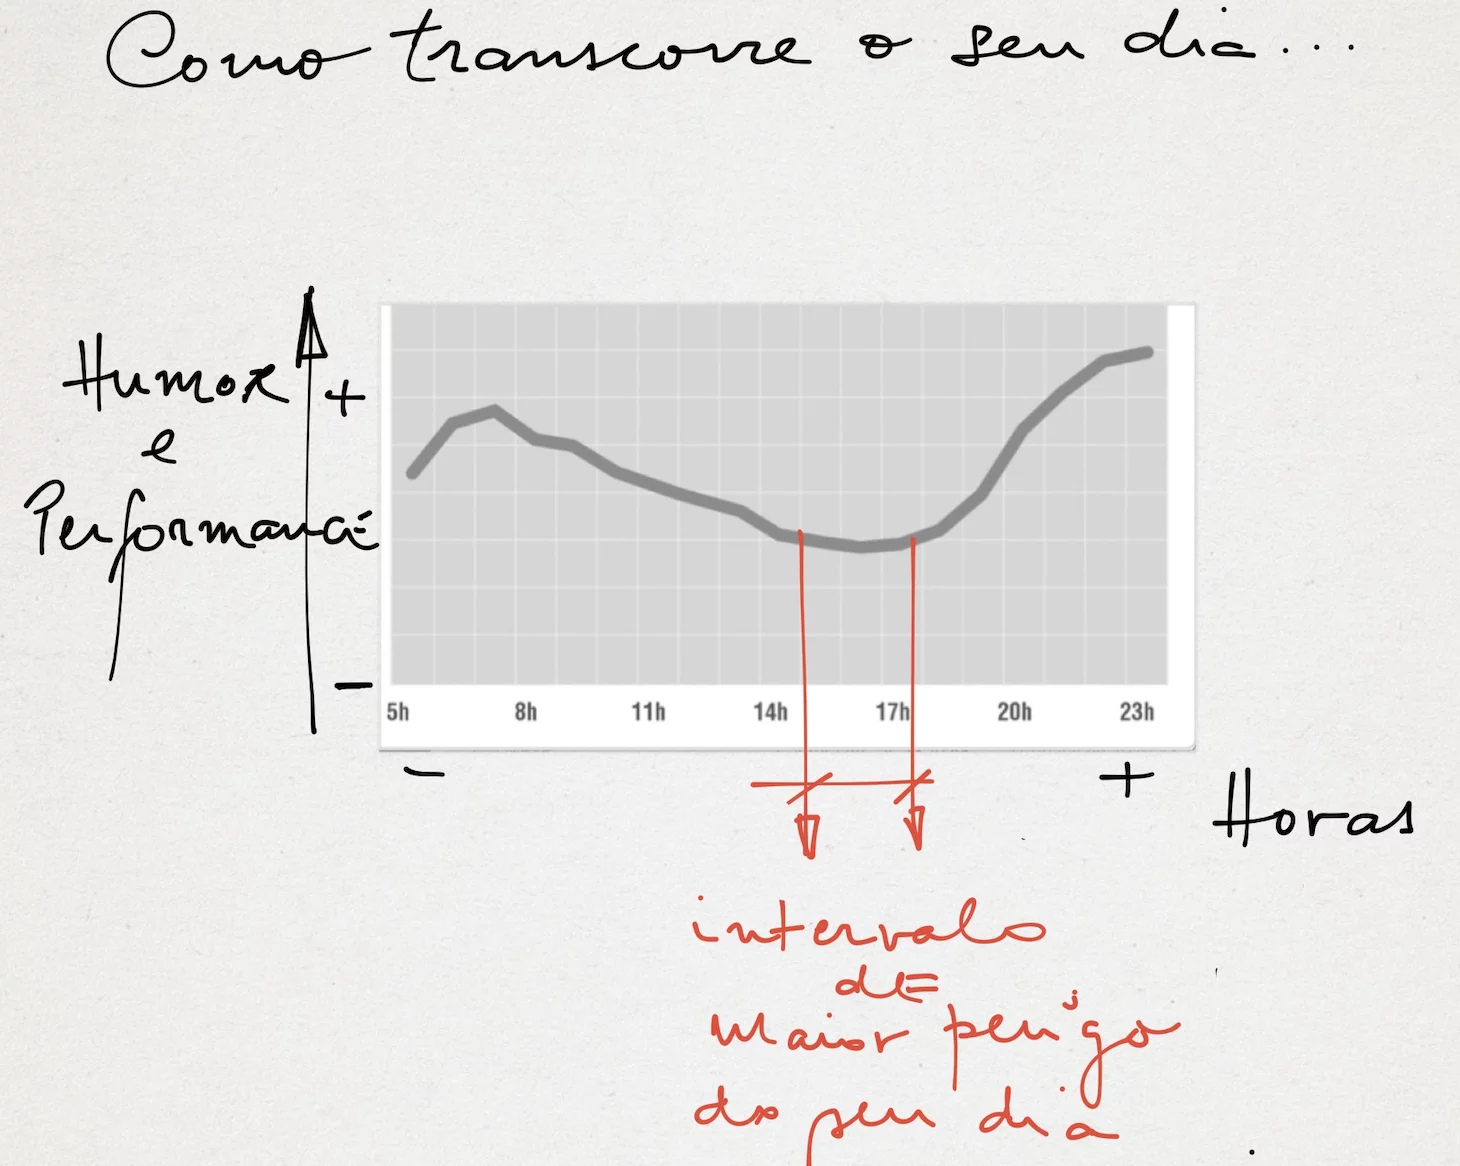 Como transcorre o seu dia...
Humor
e
Performance
+
-
5h 8h 11h 14h 17h 20h 23h
- +
Horas
intervalo
de
maior perigo
do seu dia